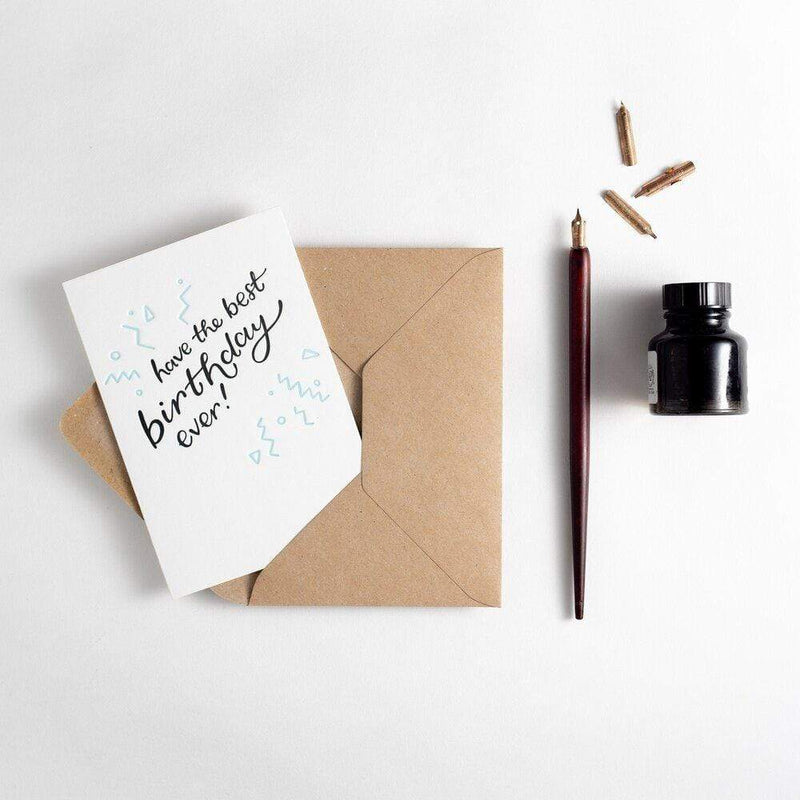 have the best
birthday
ever!